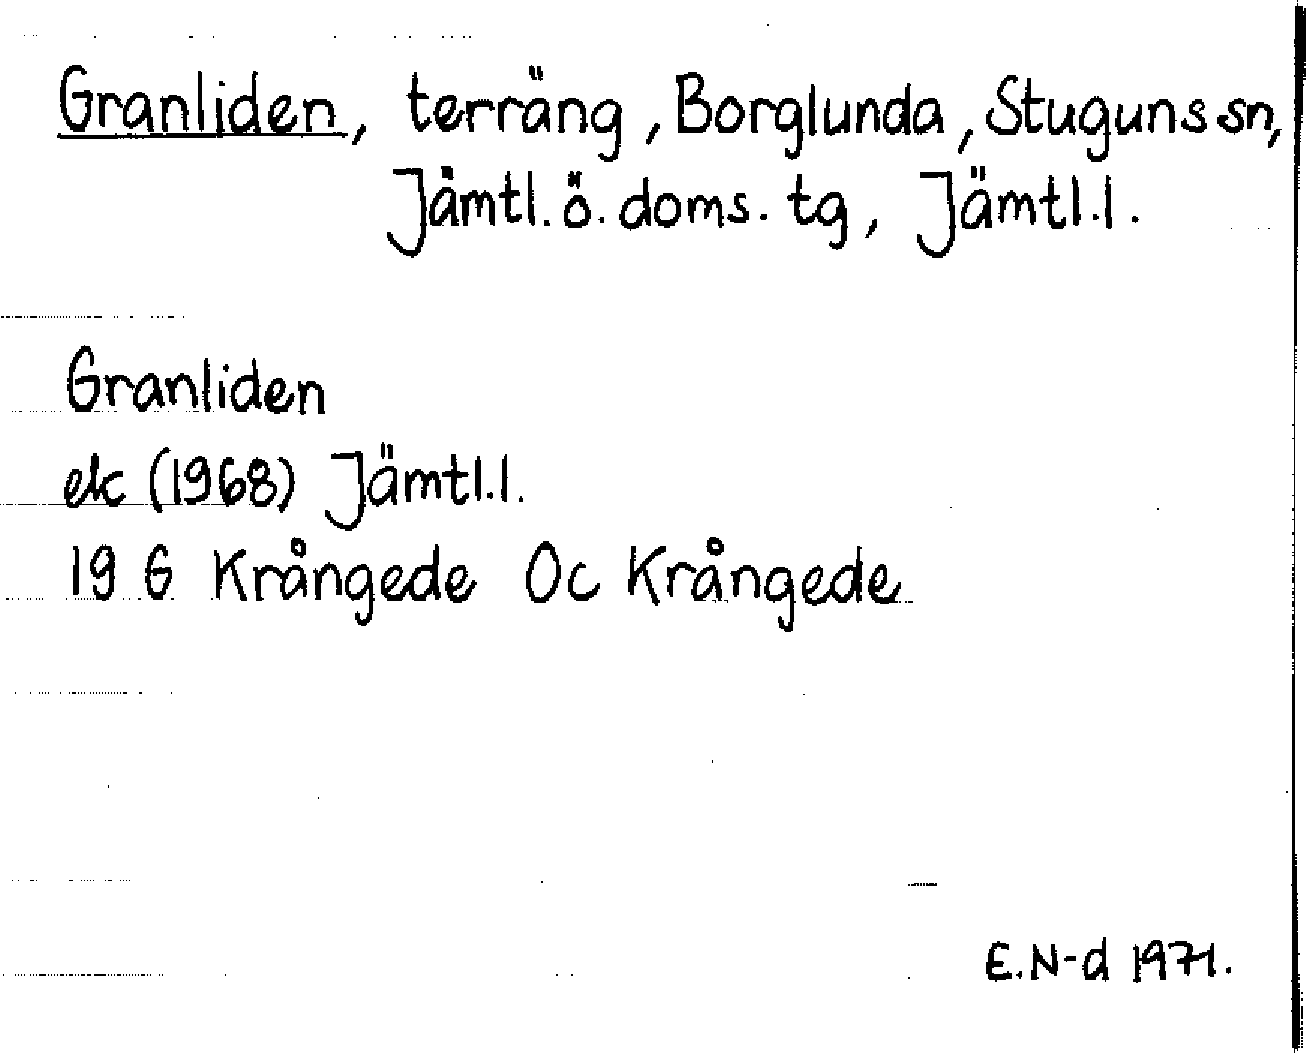 Granliden, terräng, Borglunda, Stuguns sn,
Jämtl. ö. doms. tg, Jämtl.l.
Granliden
ek (1968) Jämtl.l.
19 G Krångede Oc Krångede
E.N-d 1971.